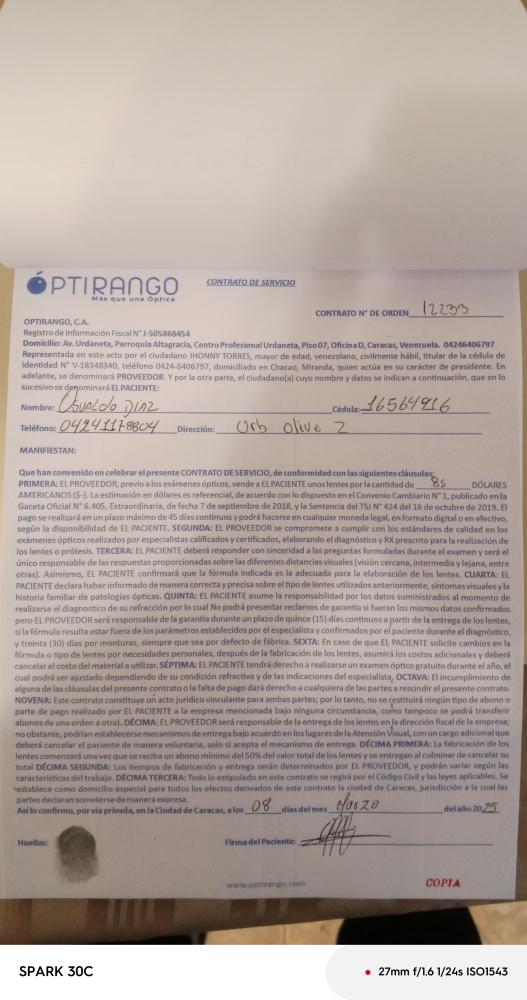 ÓPTIRANGO
Más que una Óptica
CONTRATO DE SERVICIO
CONTRATO N° DE ORDEN 12233
OPTIRANGO, C.A.
Registro de Información Fiscal N° J-505868454
Domicilio: Av. Urdaneta, Parroquia Altagracia, Centro Profesional Urdaneta, Piso 07, Oficina D, Caracas, Venezuela. 04246406797
Representada en este acto por el ciudadano JHONNY TORRES, mayor de edad, venezolano, civilmente hábil, titular de la cédula de
identidad N° V-18348340, teléfono 0424-6406797, domiciliado en Chacao, Miranda, quien actúa en su carácter de presidente. En
adelante, se denominará PROVEEDOR. Y por la otra parte, el ciudadano(a) cuyo nombre y datos se indican a continuación, que en lo
sucesivo se denominará EL PACIENTE:
Nombre: Osvaldo Diaz Cédula: 16564916
Teléfono: 04241178804 Dirección: Urb Olive 2
MANIFIESTAN:
Que han convenido en celebrar el presente CONTRATO DE SERVICIO, de conformidad con las siguientes cláusulas:
PRIMERA: EL PROVEEDOR, previo a los exámenes ópticos, vende a EL PACIENTE unos lentes por la cantidad de 85 DÓLARES
AMERICANOS ($-). La estimación en dólares es referencial, de acuerdo con lo dispuesto en el Convenio Cambiario N° 1, publicado en la
Gaceta Oficial N° 6.405, Extraordinaria, de fecha 7 de septiembre de 2018, y la Sentencia del TSJ N° 424 del 16 de octubre de 2019. El
pago se realizará en un plazo máximo de 45 días continuos y podrá hacerse en cualquier moneda legal, en formato digital o en efectivo,
según la disponibilidad de EL PACIENTE. SEGUNDA: EL PROVEEDOR se compromete a cumplir con los estándares de calidad en los
exámenes ópticos realizados por especialistas calificados y certificados, elaborando el diagnóstico y RX prescrito para la realización de
los lentes o prótesis. TERCERA: EL PACIENTE deberá responder con sinceridad a las preguntas formuladas durante el examen y será el
único responsable de las respuestas proporcionadas sobre las diferentes distancias visuales (visión cercana, intermedia y lejana, entre
otras). Asimismo, EL PACIENTE confirmará que la fórmula indicada es la adecuada para la elaboración de los lentes. CUARTA: EL
PACIENTE declara haber informado de manera correcta y precisa sobre el tipo de lentes utilizados anteriormente, síntomas visuales y la
historia familiar de patologías ópticas. QUINTA: EL PACIENTE asume la responsabilidad por los datos suministrados al momento de
realizarse el diagnostico de su refracción por lo cual No podrá presentar reclamos de garantía si fueran los mismos datos confirmados
pero EL PROVEEDOR será responsable de la garantía durante un plazo de quince (15) días continuos a partir de la entrega de los lentes,
si la fórmula resulta estar fuera de los parámetros establecidos por el especialista y confirmados por el paciente durante el diagnóstico,
y treinta (30) días por monturas, siempre que sea por defecto de fábrica. SEXTA: En caso de que EL PACIENTE solicite cambios en la
fórmula o tipo de lentes por necesidades personales, después de la fabricación de los lentes, asumirá los costos adicionales y deberá
cancelar el costo del material a utilizar. SÉPTIMA: EL PACIENTE tendrá derecho a realizarse un examen óptico gratuito durante el año, el
cual podrá ser ajustado dependiendo de su condición refractiva y de las indicaciones del especialista. OCTAVA: El incumplimiento de
alguna de las cláusulas del presente contrato o la falta de pago dará derecho a cualquiera de las partes a rescindir el presente contrato.
NOVENA: Este contrato constituye un acto jurídico vinculante para ambas partes; por lo tanto, no se restituirá ningún tipo de abono o
parte de pago realizado por EL PACIENTE a la empresa mencionada bajo ninguna circunstancia, como tampoco se podrá transferir
abonos de una orden a otra). DÉCIMA: EL PROVEEDOR será responsable de la entrega de los lentes en la dirección fiscal de la empresa;
no obstante, podrían establecerse mecanismos de entrega bajo acuerdo en los lugares de la Atención Visual, con un cargo adicional que
deberá cancelar el paciente de manera voluntaria, solo si acepta el mecanismo de entrega. DÉCIMA PRIMERA: La fabricación de los
lentes comenzará una vez que se reciba un abono mínimo del 50% del valor total de los lentes y se entregan al culminar de cancelar su
total DÉCIMA SEGUNDA: Los tiempos de fabricación y entrega serán determinados por EL PROVEEDOR, y podrán variar según las
características del trabajo. DÉCIMA TERCERA: Todo lo estipulado en este contrato se regirá por el Código Civil y las leyes aplicables. Se
establece como domicilio especial para todos los efectos derivados de este contrato la ciudad de Caracas, jurisdicción a la cual las
partes declaran someterse de manera expresa.
Así lo confirmo, por vía privada, en la Ciudad de Caracas, a los 08 días del mes Marzo del año 2025
Huellas: Firma del Paciente:
www.optirango.com
COPIA
SPARK 30C
27mm f/1.6 1/24s ISO1543